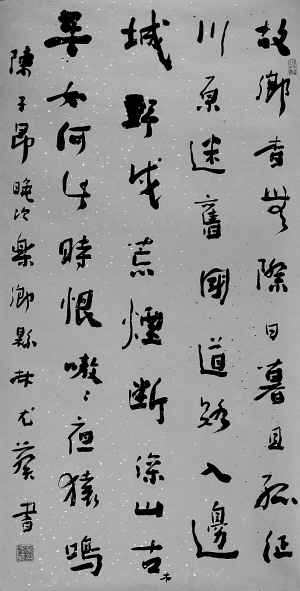 故鄉杳無際日暮且孤征
川原迷舊國道路入邊
城野戍荒煙斷深山古木
平如何此時恨噭〻夜猿鳴
陳子昂晚次樂鄉縣林尤葵書